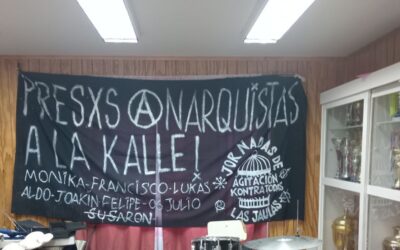 PRESXS ANARQUISTAS
A LA KALLE!
MONIKA-FRANCISCO-LUKAS
ALDO-JOAKIN FELIPE-OS JULIO
SUSARON
JORNADAS DE
AGITACIÓN
KONTRA TODAS
LAS JAULAS